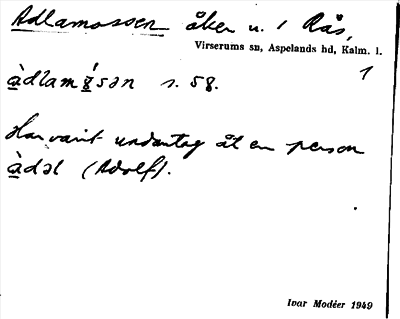 Adlamossen åker u. 1 Rås,
Virserums sn, Aspelands hd, Kalm. l.
1
àdlamǫ́sən s. 58.
Har varit undantag åt en person
àdəl (Adolf).
Ivar Modéer 1949